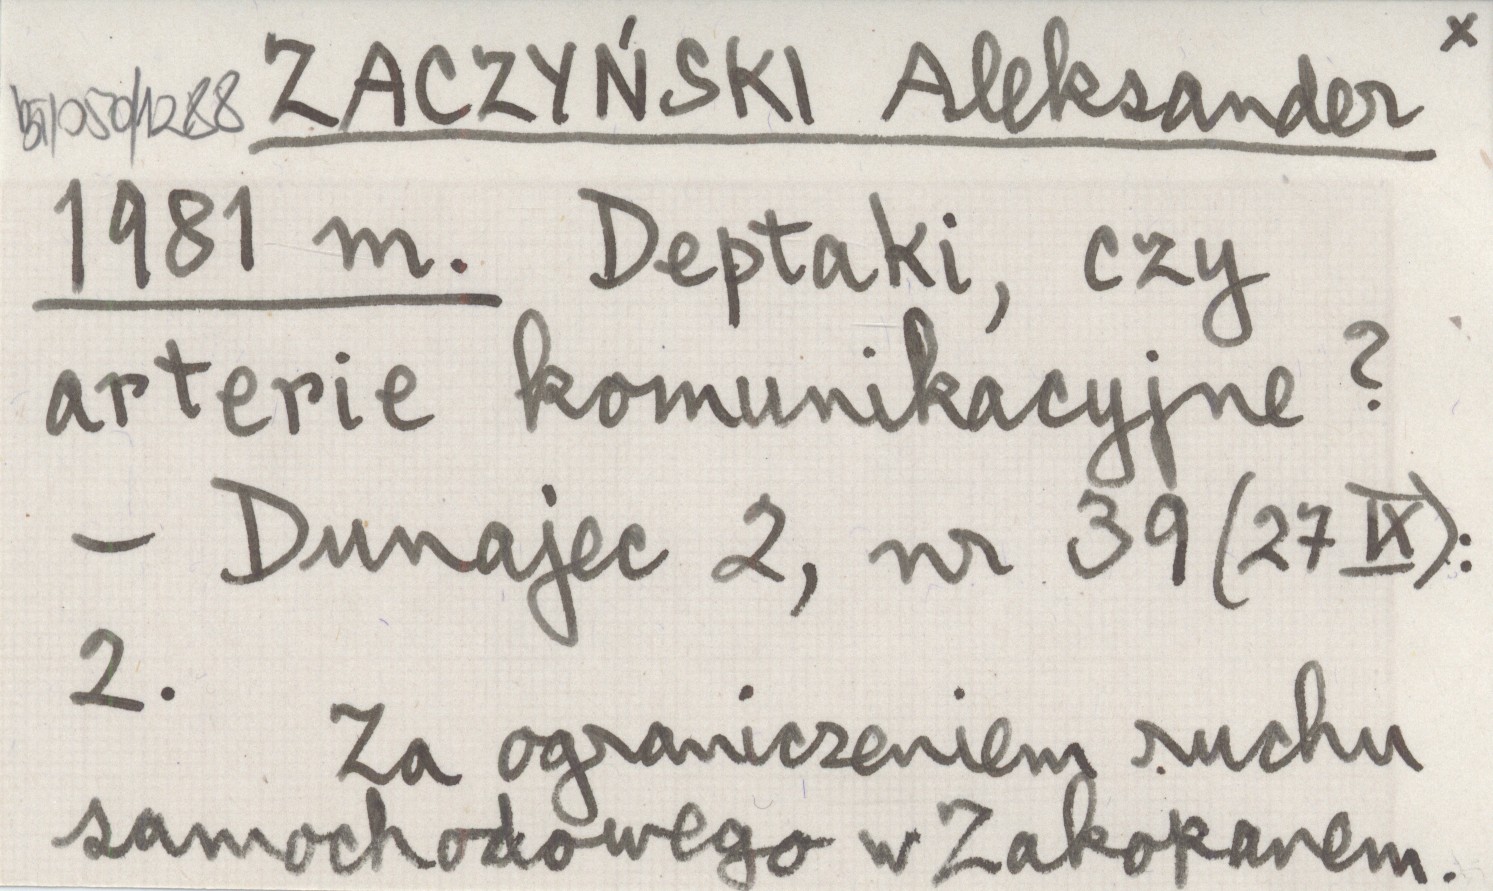 x
ZACZYŃSKI Aleksander
1981 m. Deptaki, czy
arterie komunikacyjne?
– Dunajec 2, nr 39 (27 IX):
2.
Za ograniczeniem ruchu
samochodowego w Zakopanem.